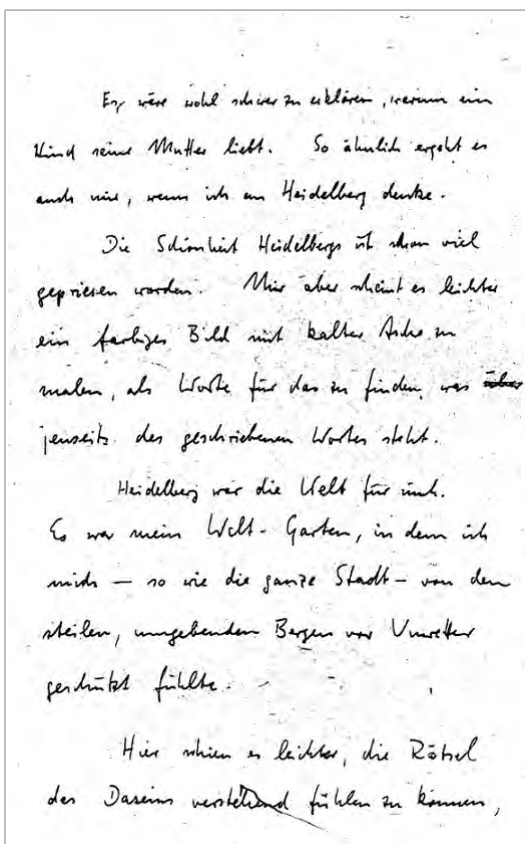 Es wäre wohl schwer zu erklären, warum ein
Kind seine Mutter liebt. So ähnlich ergeht es
auch mir, wenn ich an Heidelberg denke.
Die Schönheit Heidelbergs ist schon viel
gepriesen worden. Mir aber scheint es leichter
ein farbiges Bild mit kalter Asche zu
malen, als Worte für das zu finden, was über
jenseits des geschriebenen Wortes steht.
Heidelberg war die Welt für mich.
Es war mein Welt-Garten, in dem ich
mich — so wie die ganze Stadt — von den
steilen, umgebenden Bergen vor Unwetter
geschützt fühlte.
Hier schien es leichter, die Rätsel
des Daseins verstehend fühlen zu können,